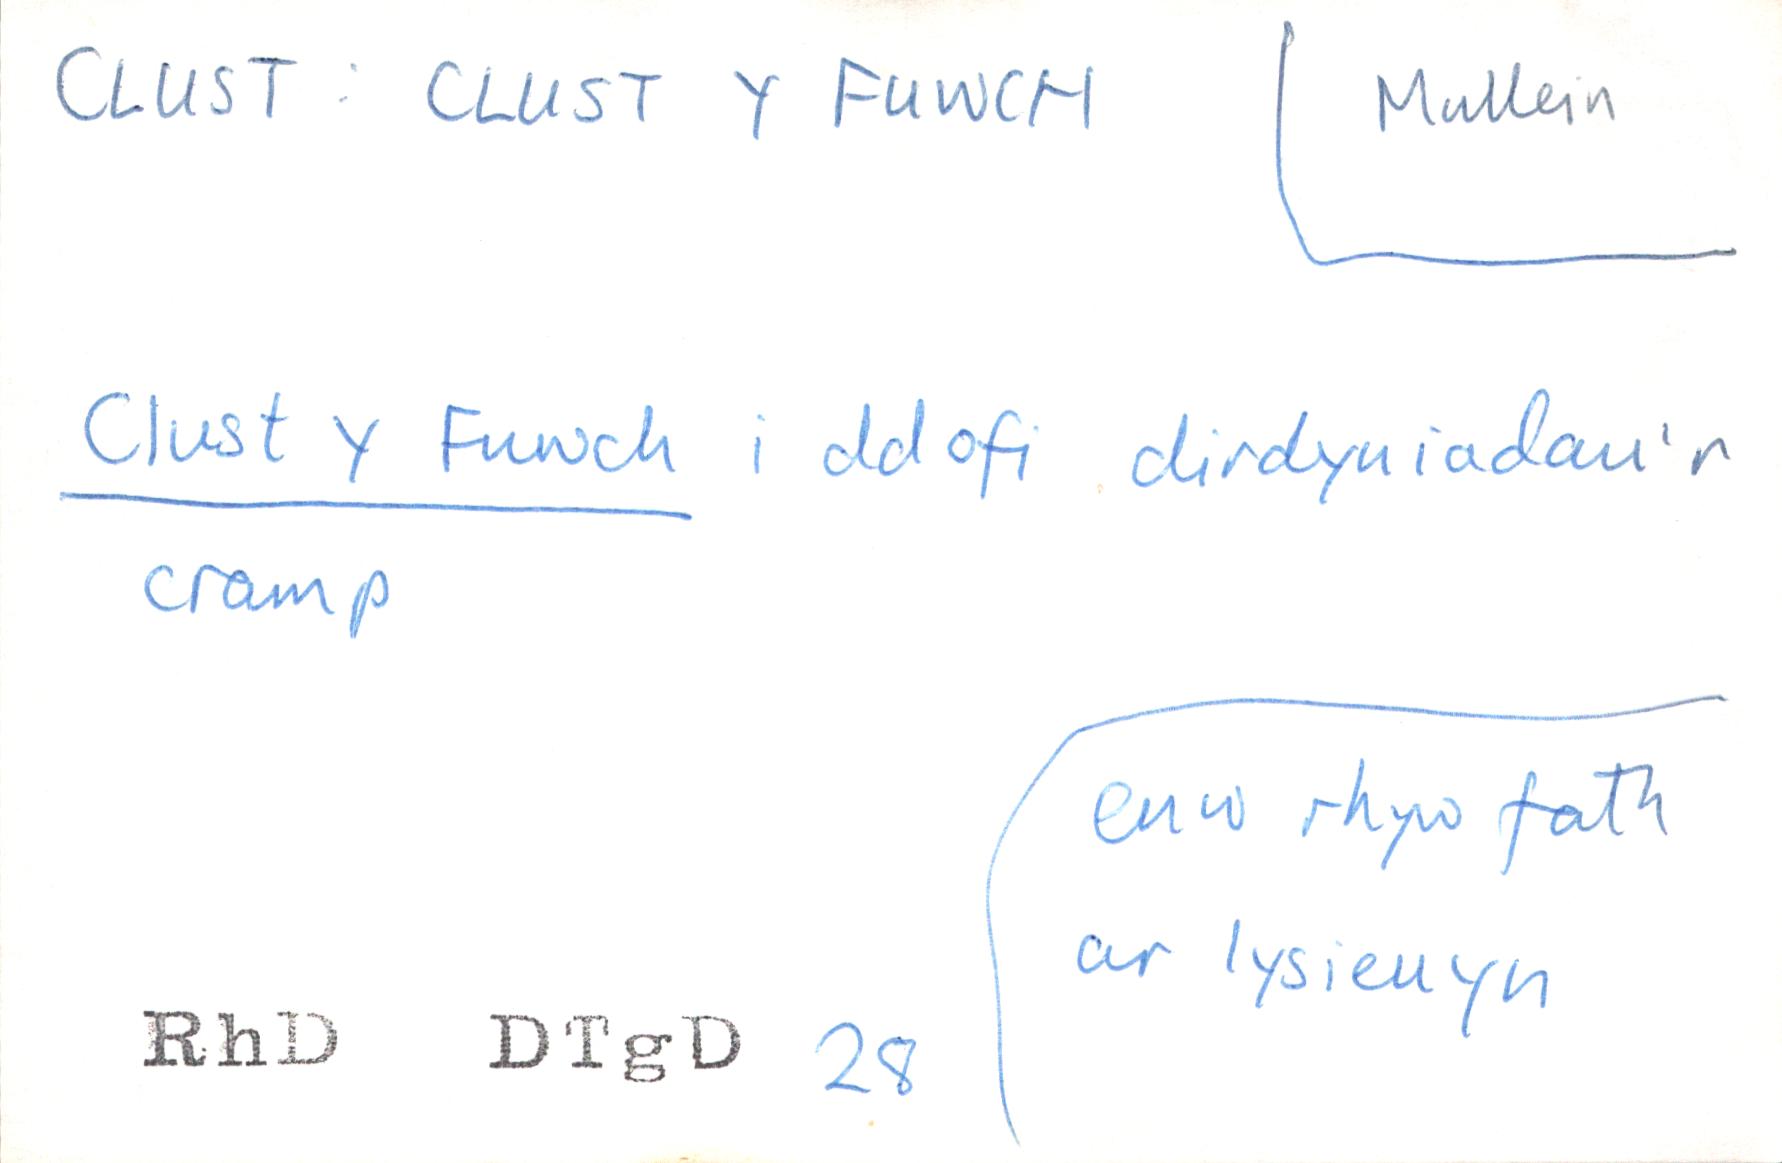 CLUST : CLUST Y FUWCH
Mullein
Clust y Fuwch i ddofi dirdyniadau'r
cramp
enw rhyw fath
ar lysieuyn
RhD DTgD 28